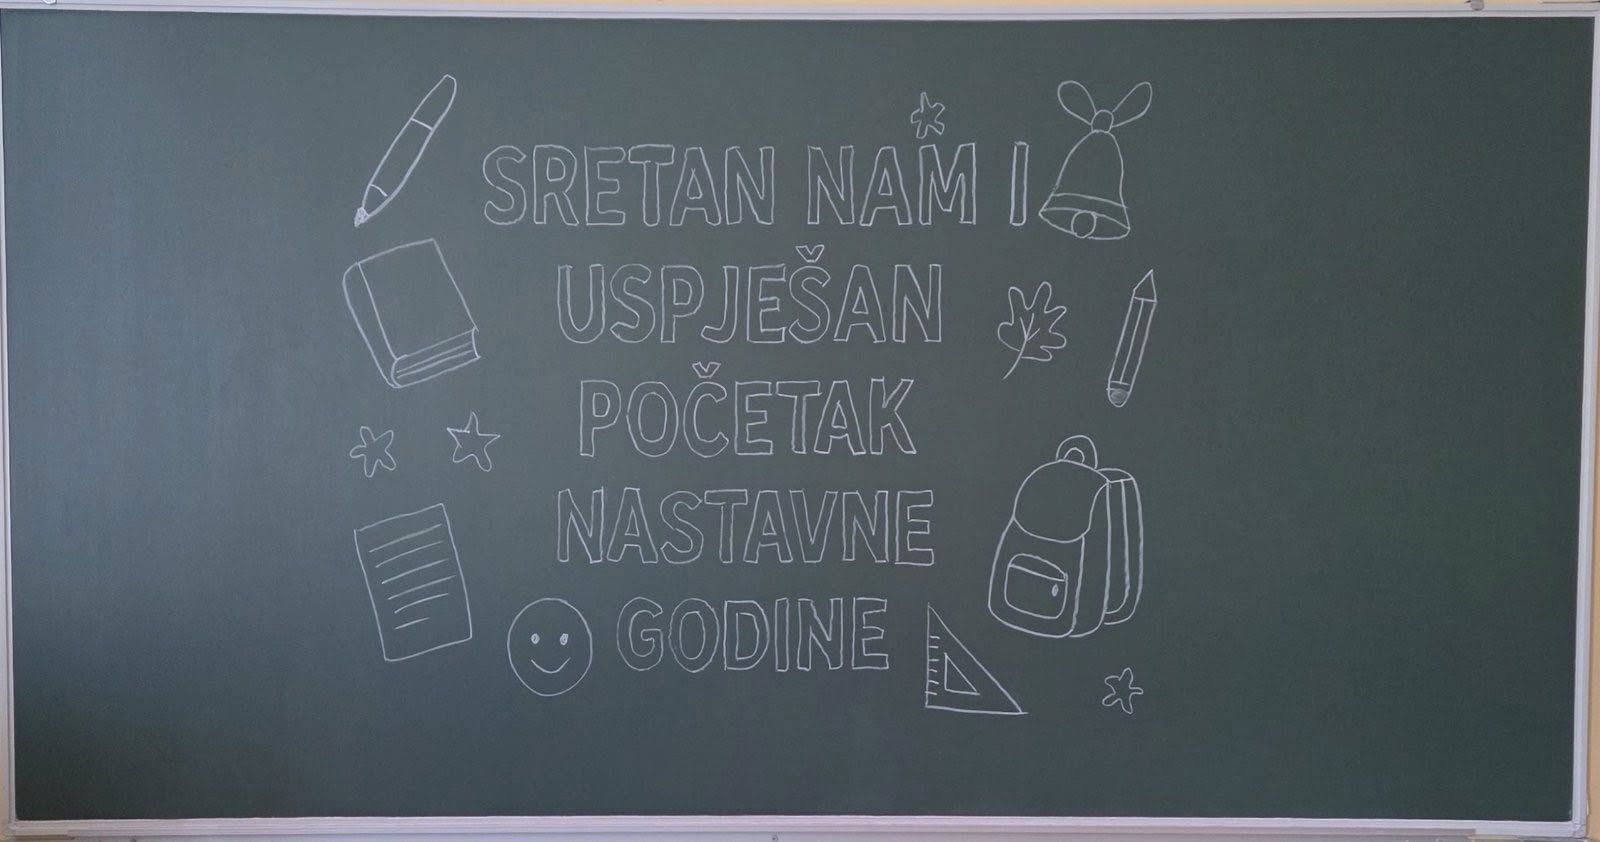 SRETAN NAM I
USPJEŠAN
POČETAK
NASTAVNE
GODINE